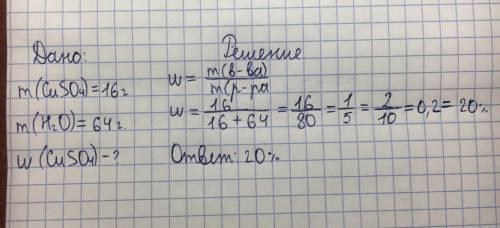 Дано:
m(CuSO4)=16г
m(H2O)=64г.
w(CuSO4)-?
Решение
w= m(в-ва)
m(р-ра
w= 16/(16+64) = 16/80 = 1/5 = 2/10 = 0,2 = 20%
Ответ: 20%